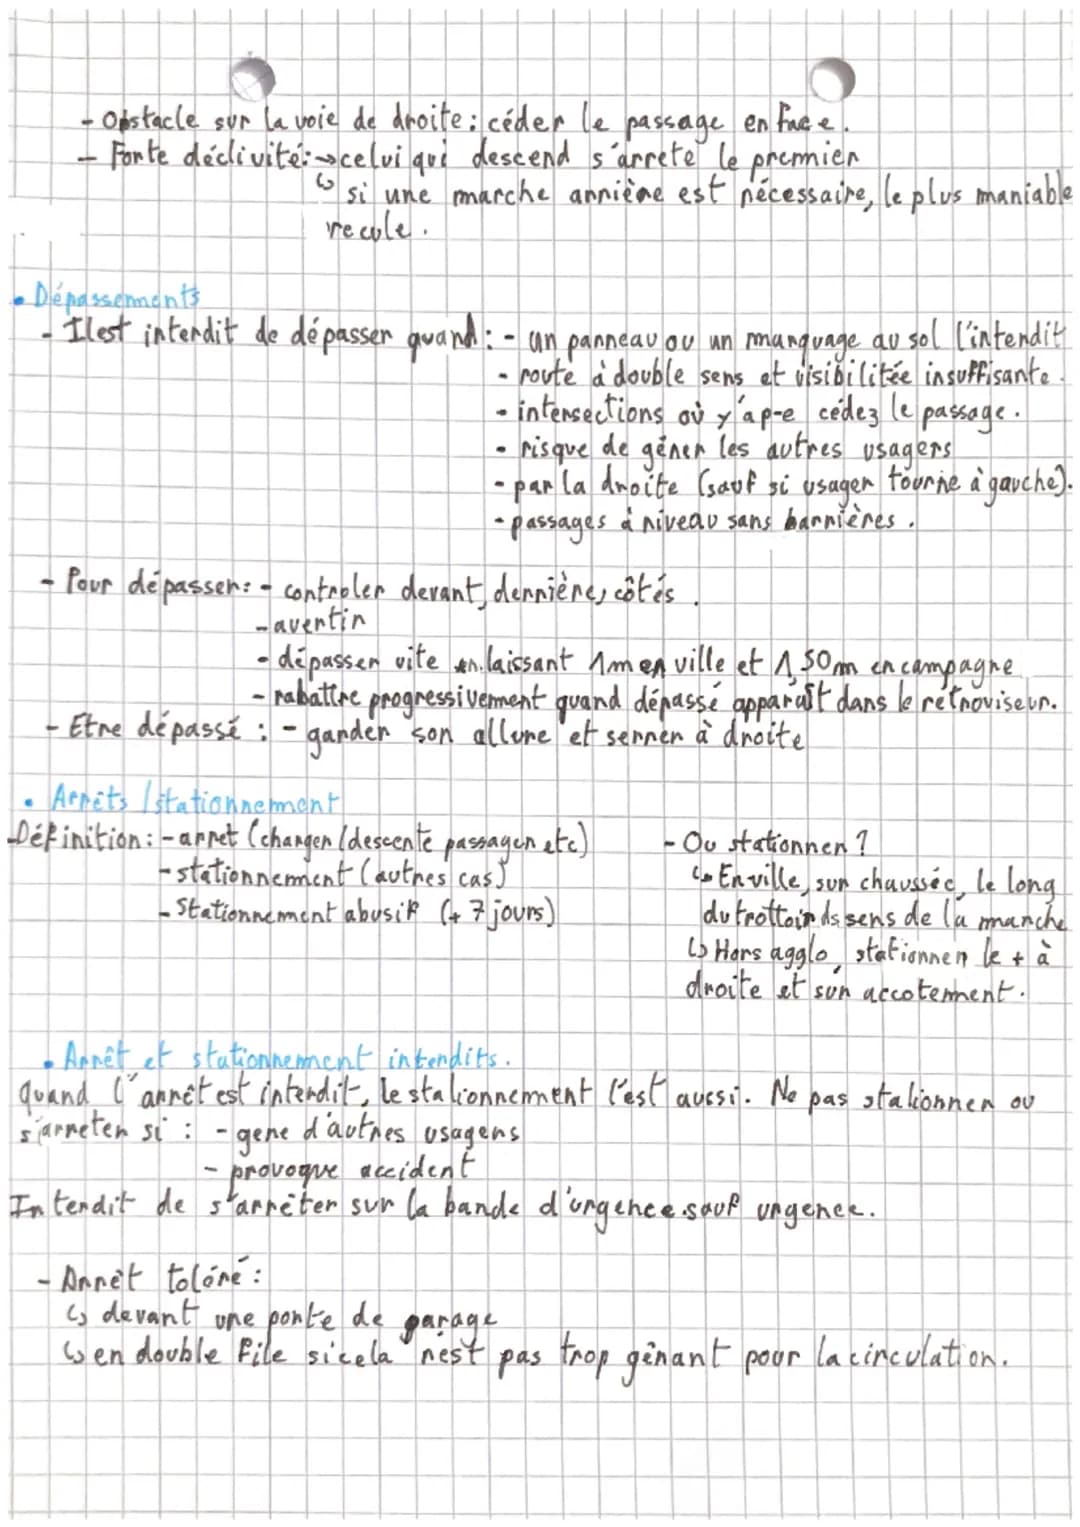 - Obstacle sur la voie de droite : céder le passage en face.
- Forte déclivité : → celui qui descend s'arrete le premier
↳ si une marche arrière est nécessaire, le plus maniable
recule.
• Dépassements
- Il est interdit de dépasser quand : - un panneau ou un marquage au sol l'interdit
- route à double sens et visibilitée insuffisante.
- intersections où y'a p-e cédez le passage.
- risque de gêner les autres usagers
- par la droite (sauf si usager tourne à gauche).
- passages à niveau sans barrières.
- Pour dépasser : - controler devant, derrière, côtés.
- avertir
- dépasser vite en laissant 1m en ville et 1,50m en campagne
- rabattre progressivement quand dépassé apparaît dans le retroviseur.
- Etre dépassé : - garder son allure et serrer à droite
• Arrêts / stationnement
Définition : - arret (charger / descente passager etc)
- stationnement (autres cas)
- Stationnement abusif (+ 7 jours)
- Ou stationner ?
↳ En ville, sur chaussée, le long
du trottoir ds sens de la marche
↳ Hors agglo, stationner le + à
droite et sur accotement.
• Arrêt et stationnement interdits.
Quand l'arrêt est interdit, le stationnement l'est aussi. Ne pas stationner ou
s'arreter si : - gene d'autres usagers
- provoque accident
Interdit de s'arrêter sur la bande d'urgence sauf urgence.
- Arrêt toléré :
↳ devant une porte de garage
↳ en double file si cela n'est pas trop gênant pour la circulation.